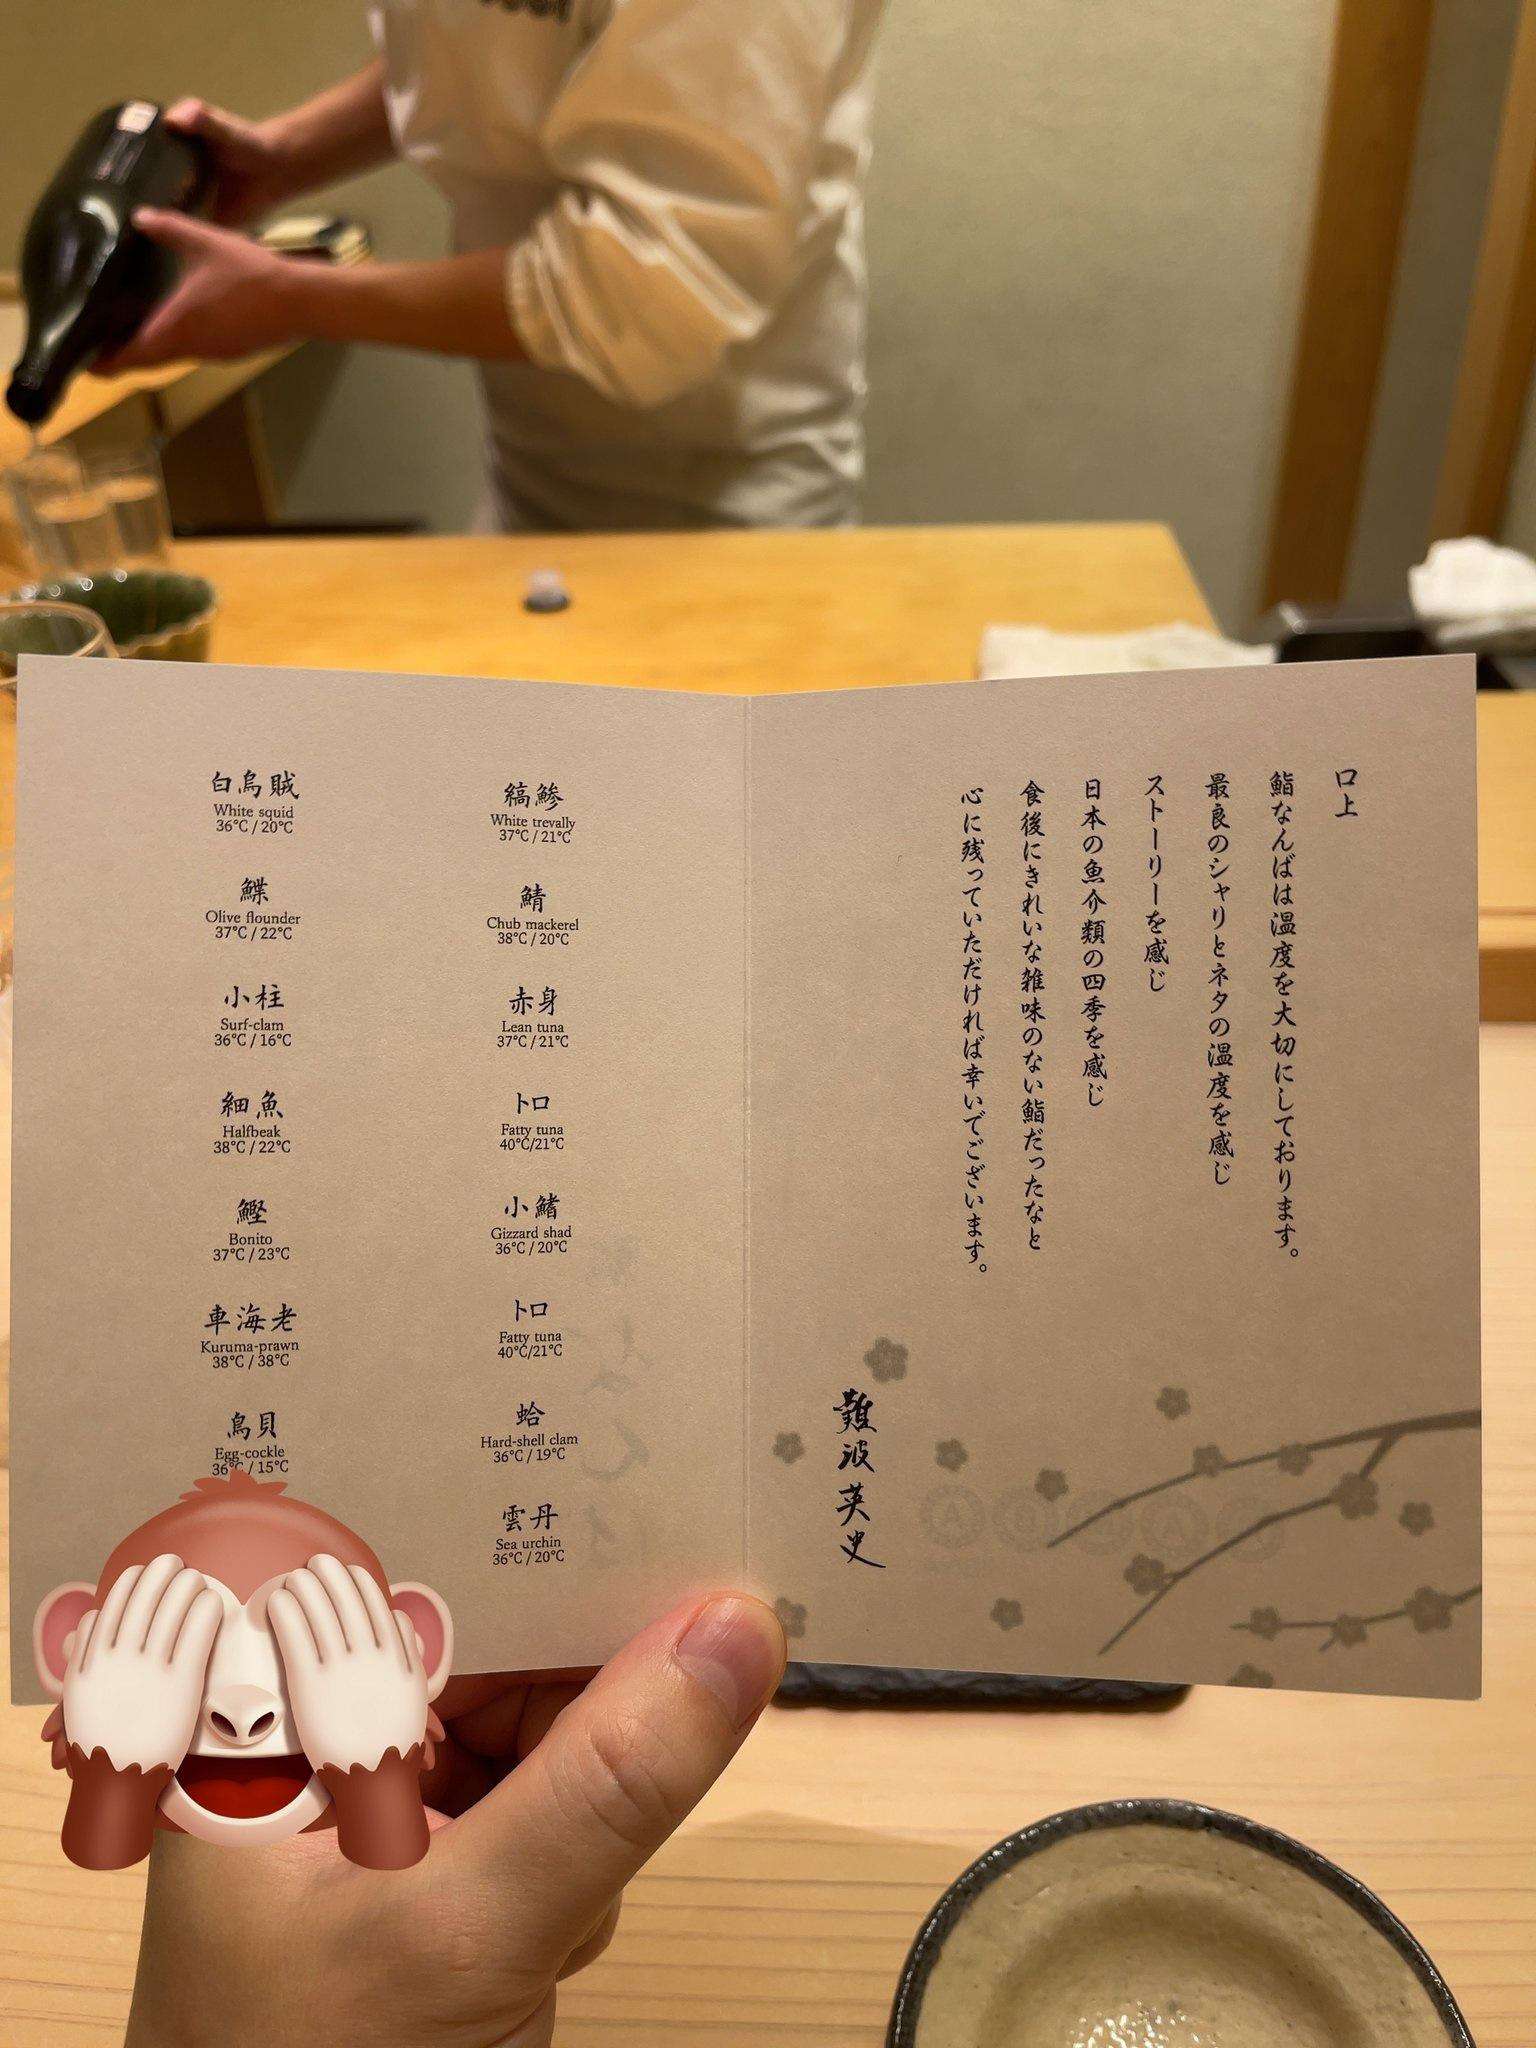 白烏賊
White squid
36℃ / 20℃
鰈
Olive flounder
37℃ / 22℃
小柱
Surf-clam
36℃ / 16℃
細魚
Halfbeak
38℃ / 22℃
鰹
Bonito
37℃ / 23℃
車海老
Kuruma-prawn
38℃ / 38℃
鳥貝
Egg-cockle
36℃ / 15℃
縞鯵
White trevally
37℃ / 21℃
鯖
Chub mackerel
38℃ / 20℃
赤身
Lean tuna
37℃ / 21℃
トロ
Fatty tuna
40℃/21℃
小鰭
Gizzard shad
36℃ / 20℃
トロ
Fatty tuna
40℃/21℃
蛤
Hard-shell clam
36℃ / 19℃
雲丹
Sea urchin
36℃ / 20℃
口上
鮨なんばは温度を大切にしております。
最良のシャリとネタの温度を感じ
ストーリーを感じ
日本の魚介類の四季を感じ
食後にきれいな雑味のない鮨だったなと
心に残っていただければ幸いでございます。
難波英史